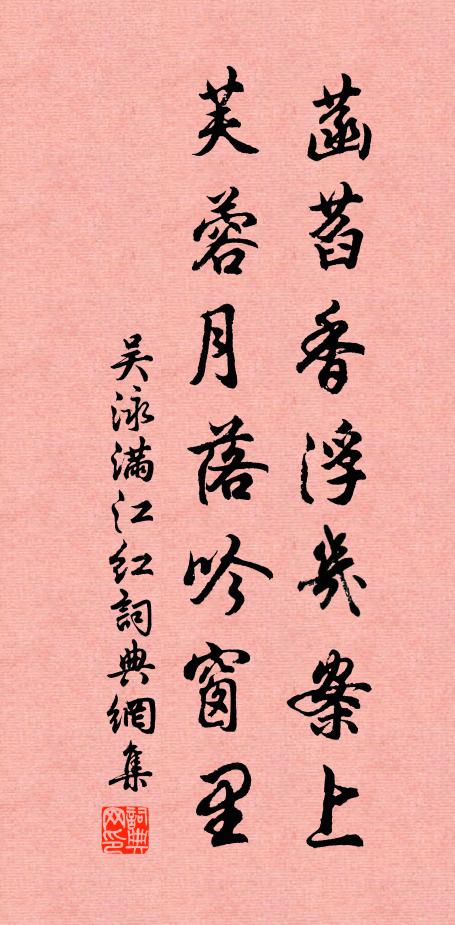 菡萏香浮几案上
芙蓉月落吟窗里
吴泳满江红詞典網集
詞典网印